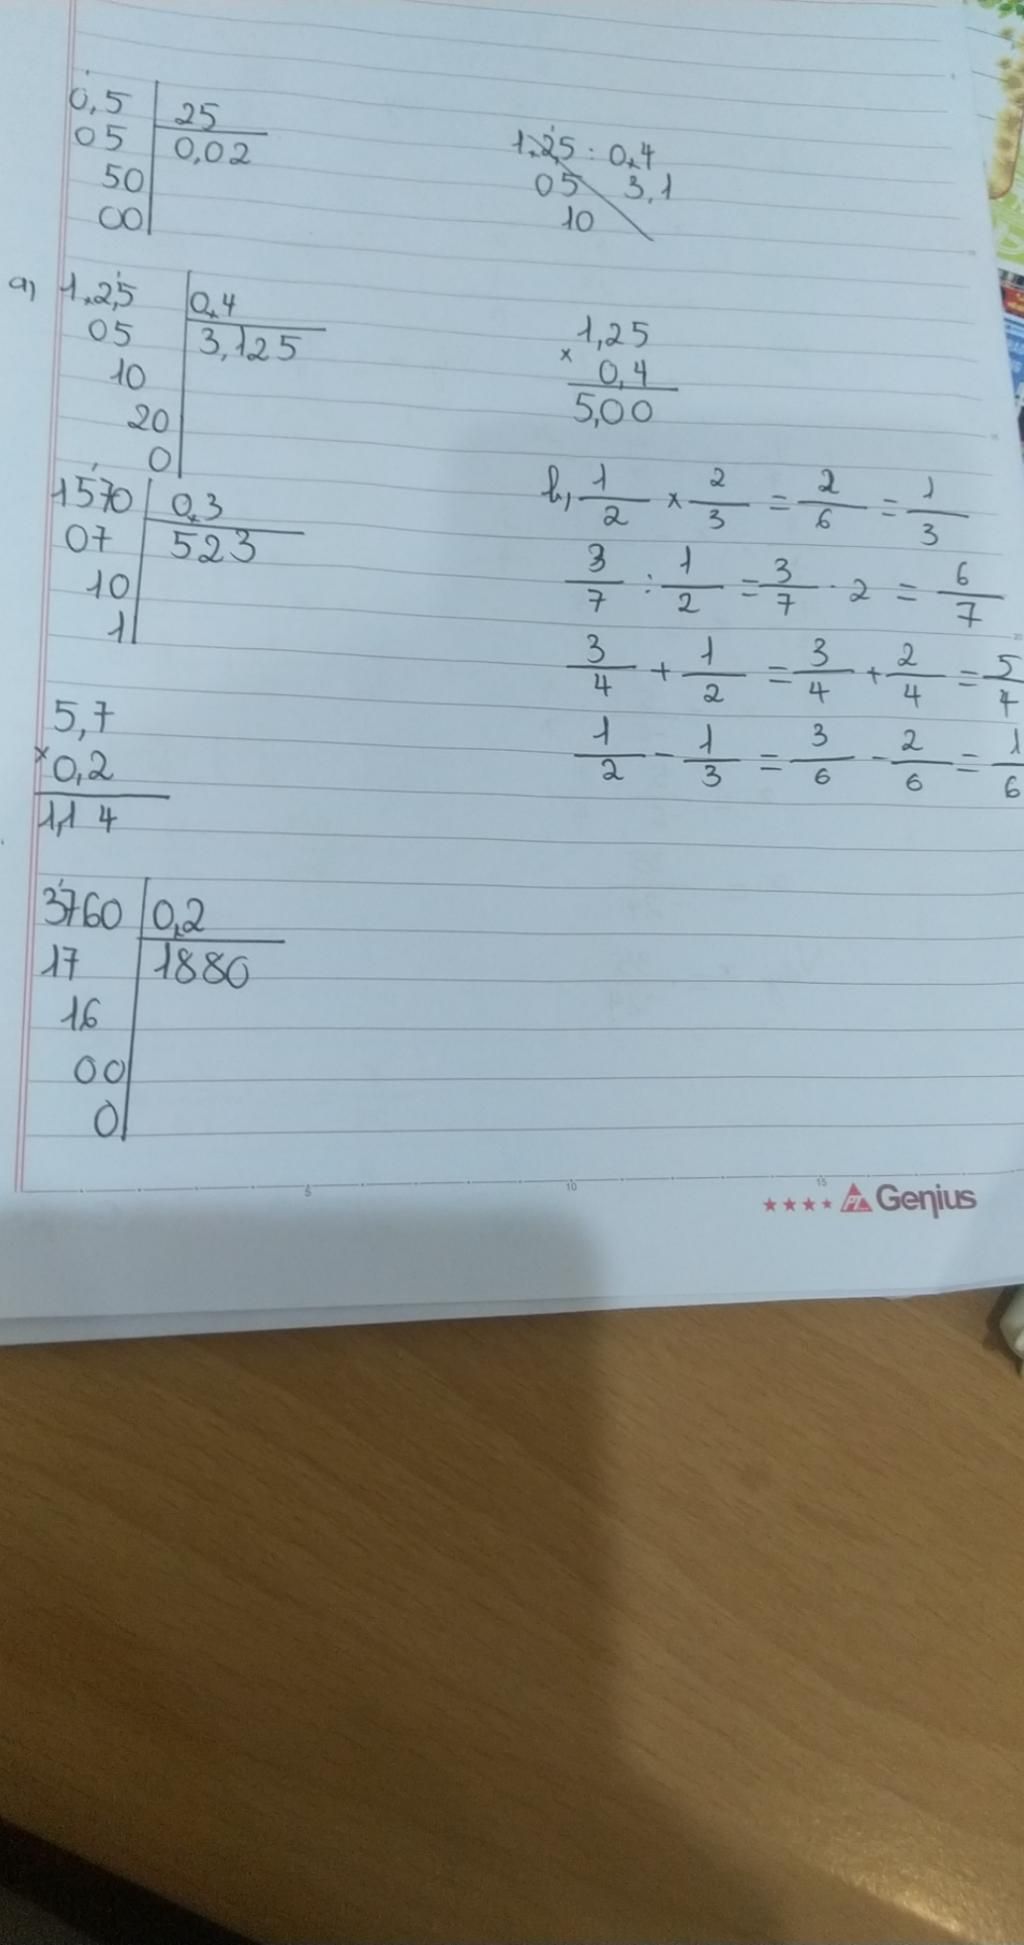 0,5 25
05 0,02
50
00
1,25 : 0,4
05 3,1
10
a) 1,25 0,4
05 3,125
10
20
0
1,25
× 0,4
5,00
1570 0,3
07 523
10
1
b, 1/2 × 2/3 = 2/6 = 1/3
3/7 : 1/2 = 3/7 · 2 = 6/7
3/4 + 1/2 = 3/4 + 2/4 = 5/4
1/2 - 1/3 = 3/6 - 2/6 = 1/6
5,7
× 0,2
1,14
3760 0,2
17 1880
16
00
0
5 10 15
Genius